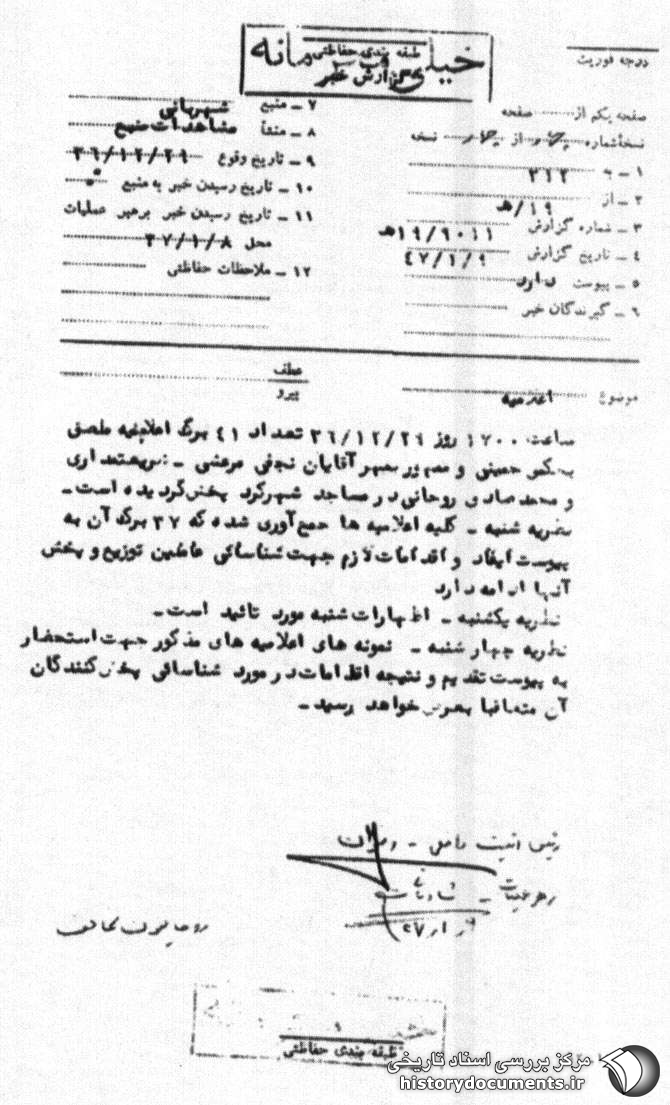 درجه فوریت
طبقه بندی حفاظتی
خیلی محرمانه
گزارش خبر
صفحه یکم از صفحه
نسخه شماره از نسخه
۱ ـ به ۳۱۲
۲ ـ از ۱۹/هـ
۳ ـ شماره گزارش ۱۹/۹۰۱۱هـ
۴ ـ تاریخ گزارش ۴۷/۱/۹
۵ ـ پیوست دارد
۶ ـ گیرندگان خبر
۷ ـ منبع شهربانی
۸ ـ منشأ مشاهدات منبع
۹ ـ تاریخ وقوع ۳۶/۱۲/۲۹
۱۰ ـ تاریخ رسیدن خبر به منبع
۱۱ ـ تاریخ رسیدن خبر برهبر عملیات
محل ۳۷/۱/۸
۱۲ ـ ملاحظات حفاظتی
موضوع اعلامیه
عطف
پیرو
ساعت ۱۷۰۰ روز ۳۶/۱۲/۲۹ تعداد ۴۱ برگ اعلامیه ملصق
بعکس خمینی و ممهور بمهر آقایان نجفی مرعشی ـ شریعتمداری
و محمد صادق روحانی در مساجد شهرکرد پخش گردیده است ـ
نظریه شنبه ـ کلیه اعلامیه ها جمع آوری شده که ۳۷ برگ آن به
پیوست ایفاد و اقدامات لازم جهت شناسائی عاملین توزیع و پخش
آنها ادامه دارد
نظریه یکشنبه ـ اظهارات شنبه مورد تائید است ـ
نظریه چهارشنبه ـ نمونه های اعلامیه های مذکور جهت استحضار
به پیوست تقدیم و نتیجه اقدامات در مورد شناسائی پخش کنندگان
آن متعاقبا بعرض خواهد رسید ـ
رئیس امنیت داخلی ـ
رهبر عملیات ـ
روحانیون مخالف
طبقه بندی حفاظتی
مرکز بررسی اسناد تاریخی
historydocuments.ir